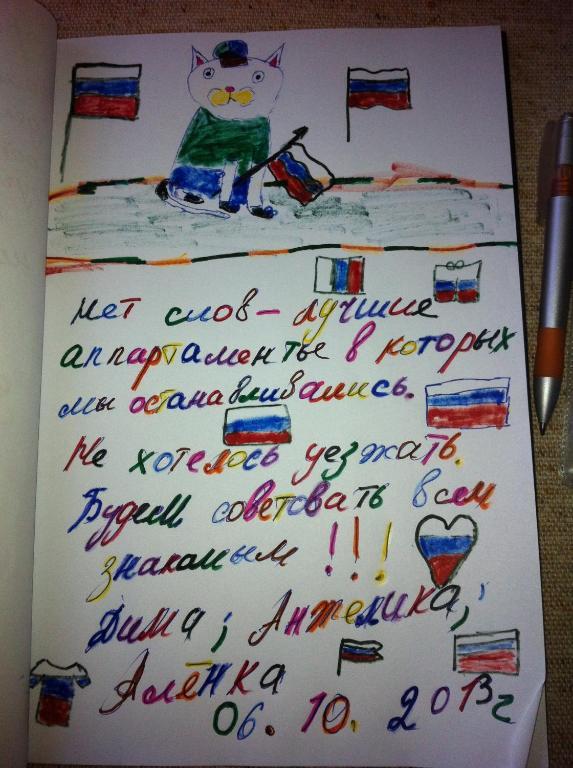 Нет слов – лучшие
аппартаменты в которых
мы останавливались.
Не хотелось уезжать.
Будем советовать всем
знакомым !!!
Дима; Анжелика;
Алёнка
06. 10. 2013г